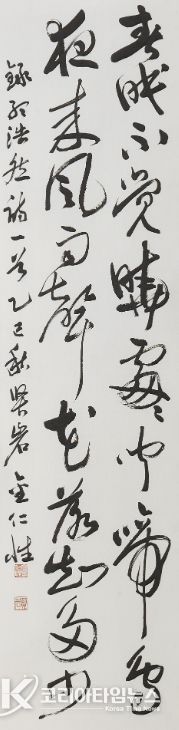 春眠不覺曉處々聞啼鳥
夜来風雨聲花落知多少
錄孟浩然詩一首 乙巳秋 賢岩 金仁性
코리아타임뉴스
Korea Time News